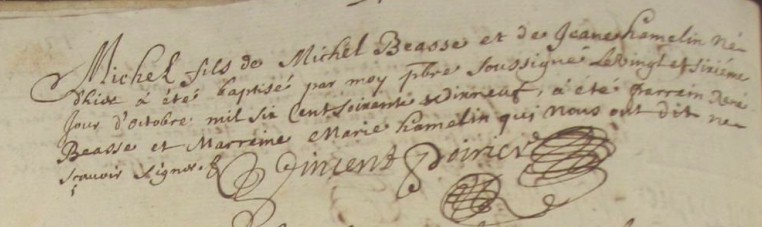 Michel fils de Michel Beasse et de Jeane hamelin né
d'hier à été baptisé par moy pbre soussigné le vingt et sixiéme
jour d'octobre mil six cent soixante dixneuf, à été parrain René
Beasse et Marraine Marie hamelin qui nous ont dit ne
scavoir signer.
Vincent Poirier